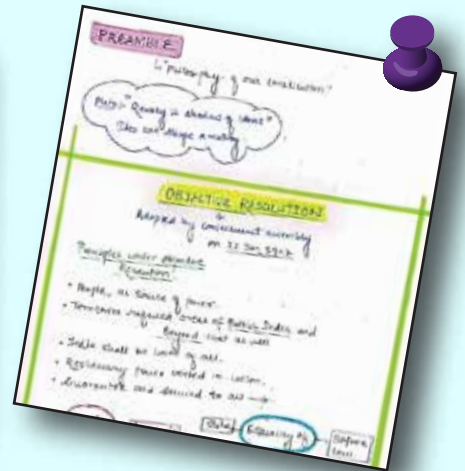 PREAMBLE
"philosophy of our constitution"
"Reality is shadow of ideas"
Idea can shape a reality
OBJECTIVE RESOLUTION
Adopted by constituent assembly
on 22 Jan, 1947
Principles under objective
Resolution:
• People, as source of power.
• Territories required areas of British India and
Beyond that as well
• India shall be land of all.
• Residuary power vested in union.
• Guarantee and secured to all →
Equality of
Before
law